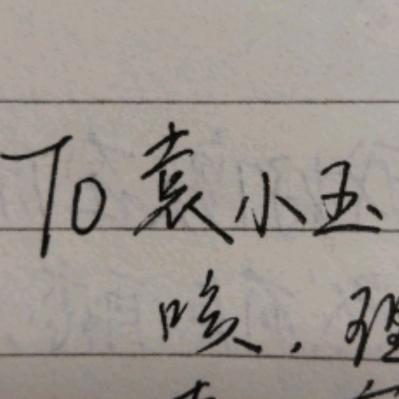 To 袁小玉
唉，理